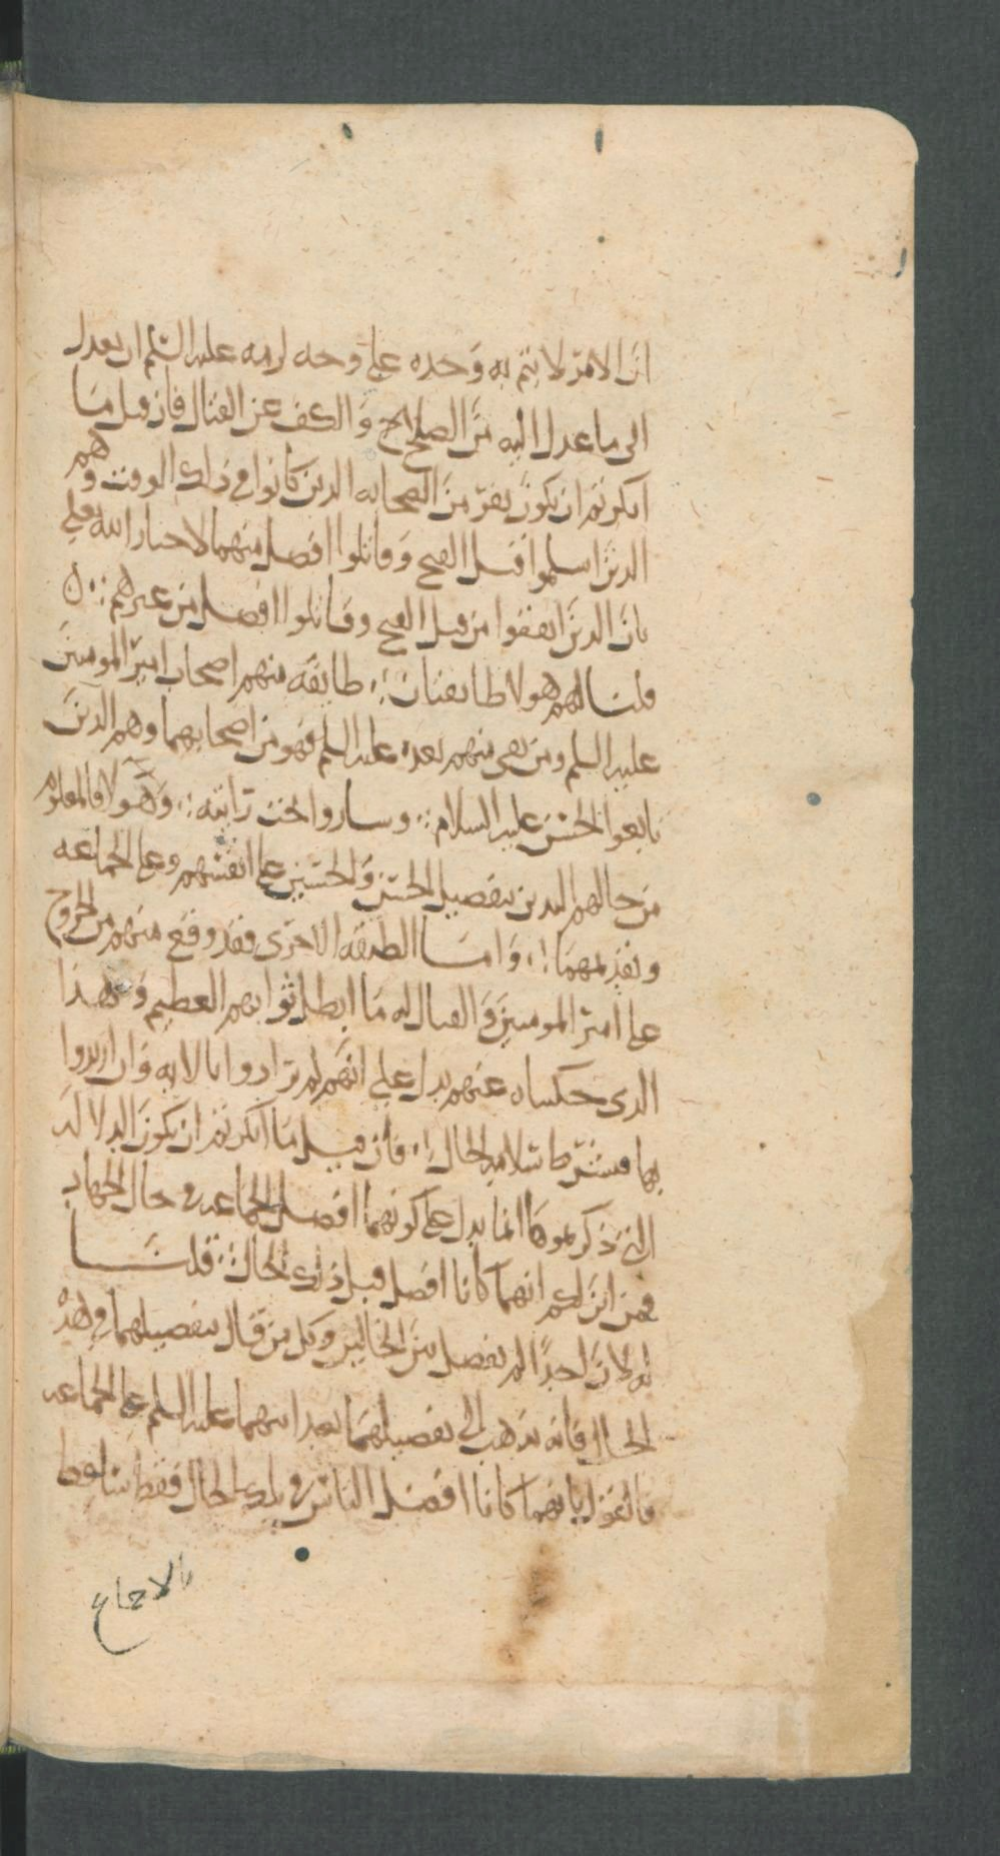 ان الامر لا يتم به وحده على وجه لزمه عليه السلم ان يعدل
الى ما عدل اليه من الصلح والكف عن القتال فان قيل ما
انكرتم ان يكون نفر من الصحابه الذين كانوا في ذلك الوقت وهم
الذين اسلموا قبل الفتح وقاتلوا افضل منهما لاخبار الله تعلى
بان الذين انفقوا من قبل الفتح وقاتلوا افضل من غيرهم ؞
قلنا لهم هولا طايفتان ؞ طايفه منهم اصحاب امير المومنين
عليه السلم ومن بقى منهم بعده عليه السلم فهو من اصحابهما وهم الذين
بايعوا الحسن عليه السلام ؞ وساروا تحت رايته ؞ وهولا فالمعلوم
من حالهم التدين بتفضيل الحسن والحسين على انفسهم وعلى الجماعه
وتقديمهما ؞ واما الطبقه الاخرى فقد وقع منهم من الخروج
على امير المومنين والقتال له ما ابطل ثوابهم العظيم وهذا
الذى حكيناه عنهم يدل على انهم لم يرادوا بالايه وان اريدوا
بها فبشرط سلامه الحال ؞ فان قيل ما انكرتم ان يكون الدلاله
التى ذكرتموها انما يدل على كونهما افضل الجماعه في حال الجهاد
فمن اين لكم انهما كانا افضل قبل ذلك الحال ؞ قلنا
له لان احدا لم يفصل بين الحالين وكل من قال بتفضيلهما في هذه
الحال فانه يذهب الى تفضيلهما بعد ابيهما عليه السلم على الجماعه
فالقول بانهما كانا افضل الناس في تلك الحال فقط ساقط
بالاجماع